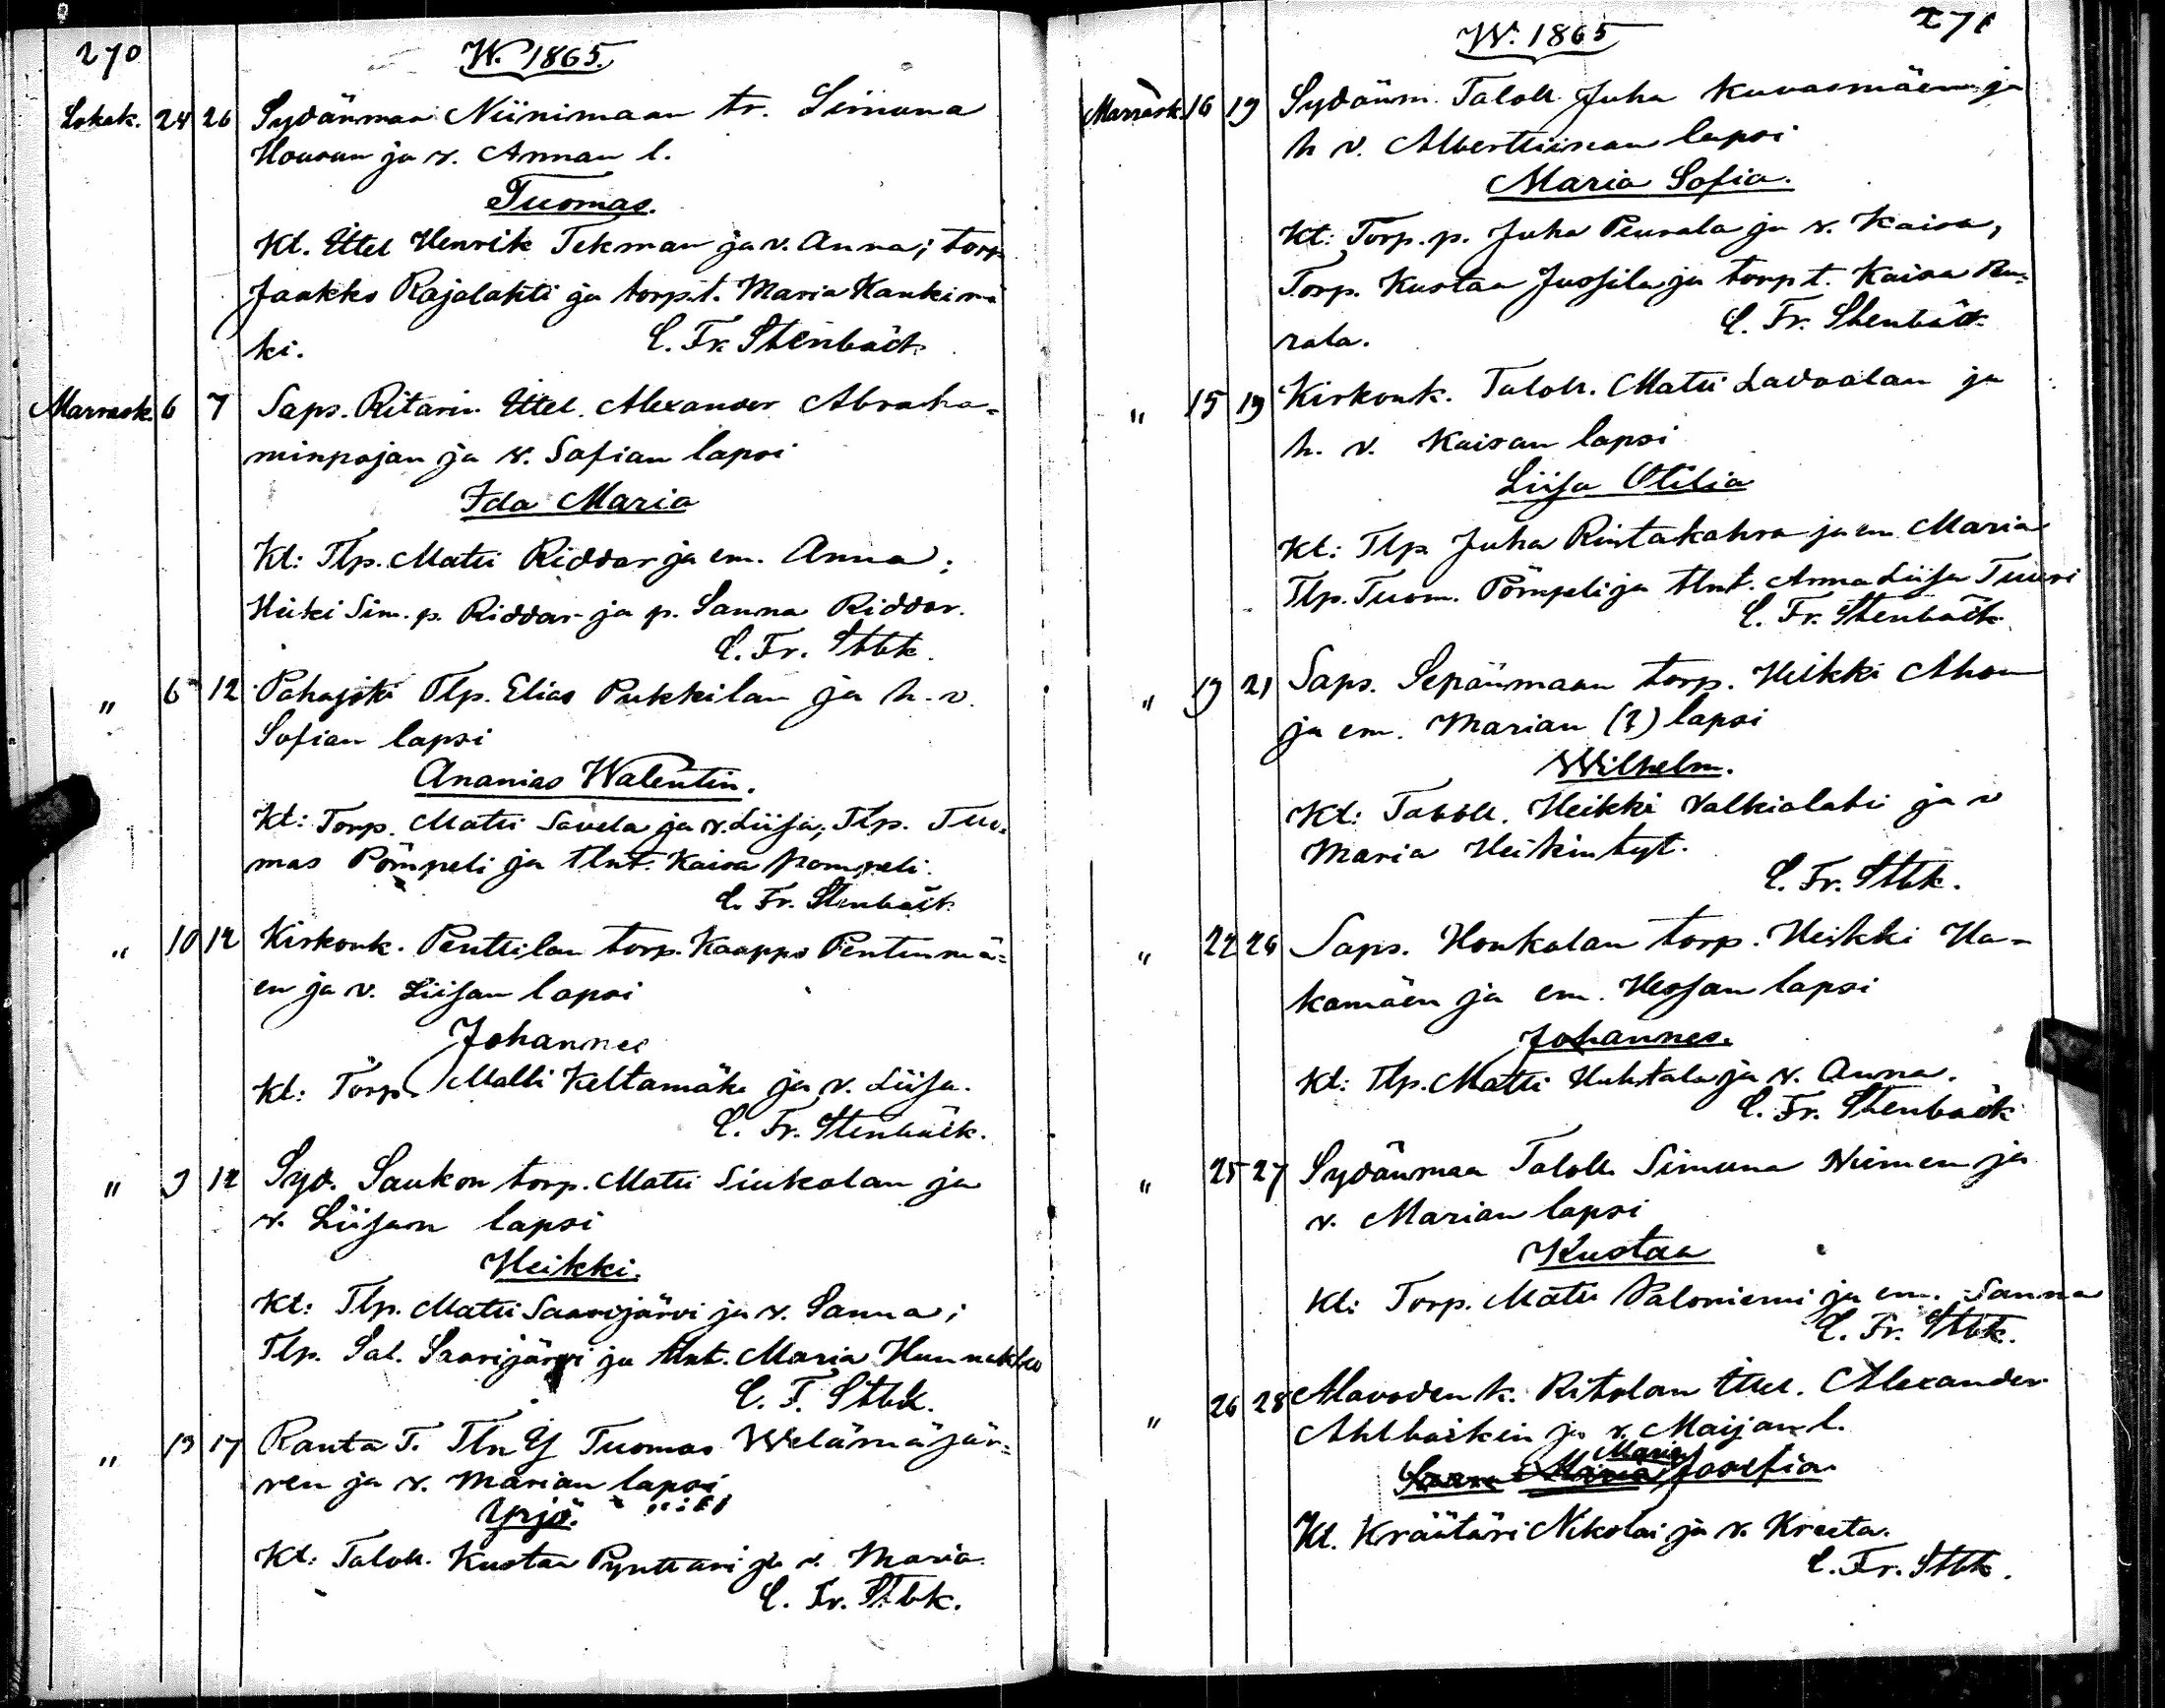 270
W. 1865.
Lokak. 24 26 Sydänmaa Niinimaan tr. Simuna
Housun ja v. Annan l.
Tuomas.
Kt. Ittel Henrik Tekman ja v. Anna; torp
Jaakko Rajalahti ja torp.t. Maria Kankimä
ki.
C. Fr. Stenbäck
Marrask. 6 7 Saps. Ritarin Ittel. Alexander Abraha-
minpojan ja v. Sofian lapsi
Ida Maria
Kt: Tlp. Matti Riddar ja em. Anna;
Heiki Sim. p. Riddar ja p. Sanna Riddar.
C. Fr. Stbk.
" 6 12 Pahajoki Tlp. Elias Pukkilan ja h. v.
Sofian lapsi
Ananias Walentin.
Kt: Torp. Matti Savela ja v. Liisa; Tlp. Tuo-
mas Pömpeli ja tlnt. Kaisa Pompeli.
C. Fr. Stenbäck
" 10 12 Kirkonk. Penttilan torp. Kaappo Pentinmä-
en ja v. Liisan lapsi
Johannes
Kt: Torp. Matti Keltamäki ja v. Liisa.
C. Fr. Stenbäck.
" 9 12 Syd. Saukon torp. Matti Siukolan ja
v. Liisan lapsi
Heikki.
Kt: Tlp. Matti Saarijärvi ja v. Sanna;
Tlp. Sal. Saarijärvi ja tlnt. Maria
C. F. Stbk.
" 13 17 Ranta T. Tln Y Tuomas Welämäjär-
ven ja v. Marian lapsi
Yrjö.
Kt: Taloll. Kustaa Pynttäri ja v. Maria.
C. Fr. Stbk.
271
W. 1865
Marrask. 16 19 Sydänm. Taloll. Juha Kuvasmäen ja
h v. Albertiinan lapsi
Maria Sofia.
Kt: Torp. p. Juha Peurala ja v. Kaisa,
Torp. Kustaa Jussila ja torp t. Kaisa Peu-
rala.
C. Fr. Stenbäck
" 15 19 Kirkonk. Taloll. Matti Ladvalan ja
h. v. Kaisan lapsi
Liisa Otilia
Kt: Tlp. Juha Rintakahra ja em. Maria
Tlp. Tuom. Pömpeli ja tlnt. Anna Liisa Tuuri
C. Fr. Stenbäck
" 19 21 Saps. Sepänmaan torp. Heikki Ahon
ja em. Marian (?) lapsi
Wilhelm.
Kt: Taloll. Heikki Valkialahti ja v
Maria Heikintyt.
C. Fr. Stbk.
" 22 26 Saps. Honkolan torp. Heikki Ha-
kamäen ja em. Hessan lapsi
Johannes.
Kt: Tlp. Matti Huhtala ja v. Anna.
C. Fr. Stenbäck
" 25 27 Sydänmaa Taloll Simuna Niemen ja
v. Marian lapsi
Kustaa
Kt: Torp. Matti Paloniemi ja em. Sanna
C. Fr. Stbk.
" 26 28 Alavoden k. Ritolan Ittel. Alexander
Ahlbäckin ja v. Maijan l.
Maria
Josefia.
Kt. Kräätäri Nikolai ja v. Kreeta.
C. Fr. Stbk.